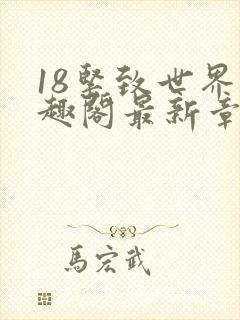 18堅致世界
趣閣最新章
馬宏武